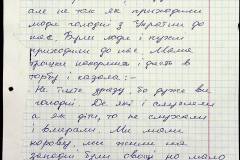 але не так як приходили
люди голодні з України до
нас. Були люди і кужні
приходили до нас. Мама
трошки накормила і дасть в
торбу і казала:-
- Не їжте зразу, бо дуже ви
голодні. Де які і слухали
а як діти, то не слухали
і вмирали. Ми мали
корову, ми жили на
западі були овощі но мало